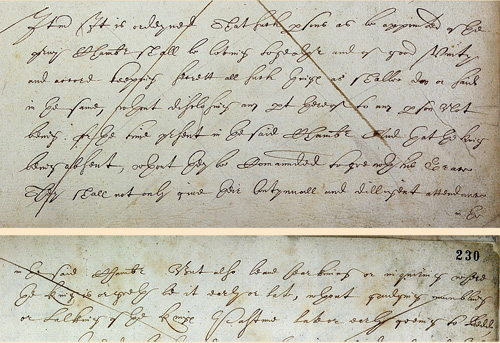 Itm It is ordeyned That such psons as be appoynted of the
privy Chambr shall be loving togeather and of good Unity
and accord keepinge secrett all such things as shalbe don or said
in the same, without disclosinge any pt thereof to any pson not
beinge for the time present in the said Chambr And that the King
being absent, without they be Comaunded to goe with his Grace
They shall not only give their Contynuall and dilligent attendance
in the
230
in the said Chambr But also leave hearkning or inquiring where
the King is or goeth be it early or late, without grudging mumbling
or talking of the Kings Pastime late or early going to bedd